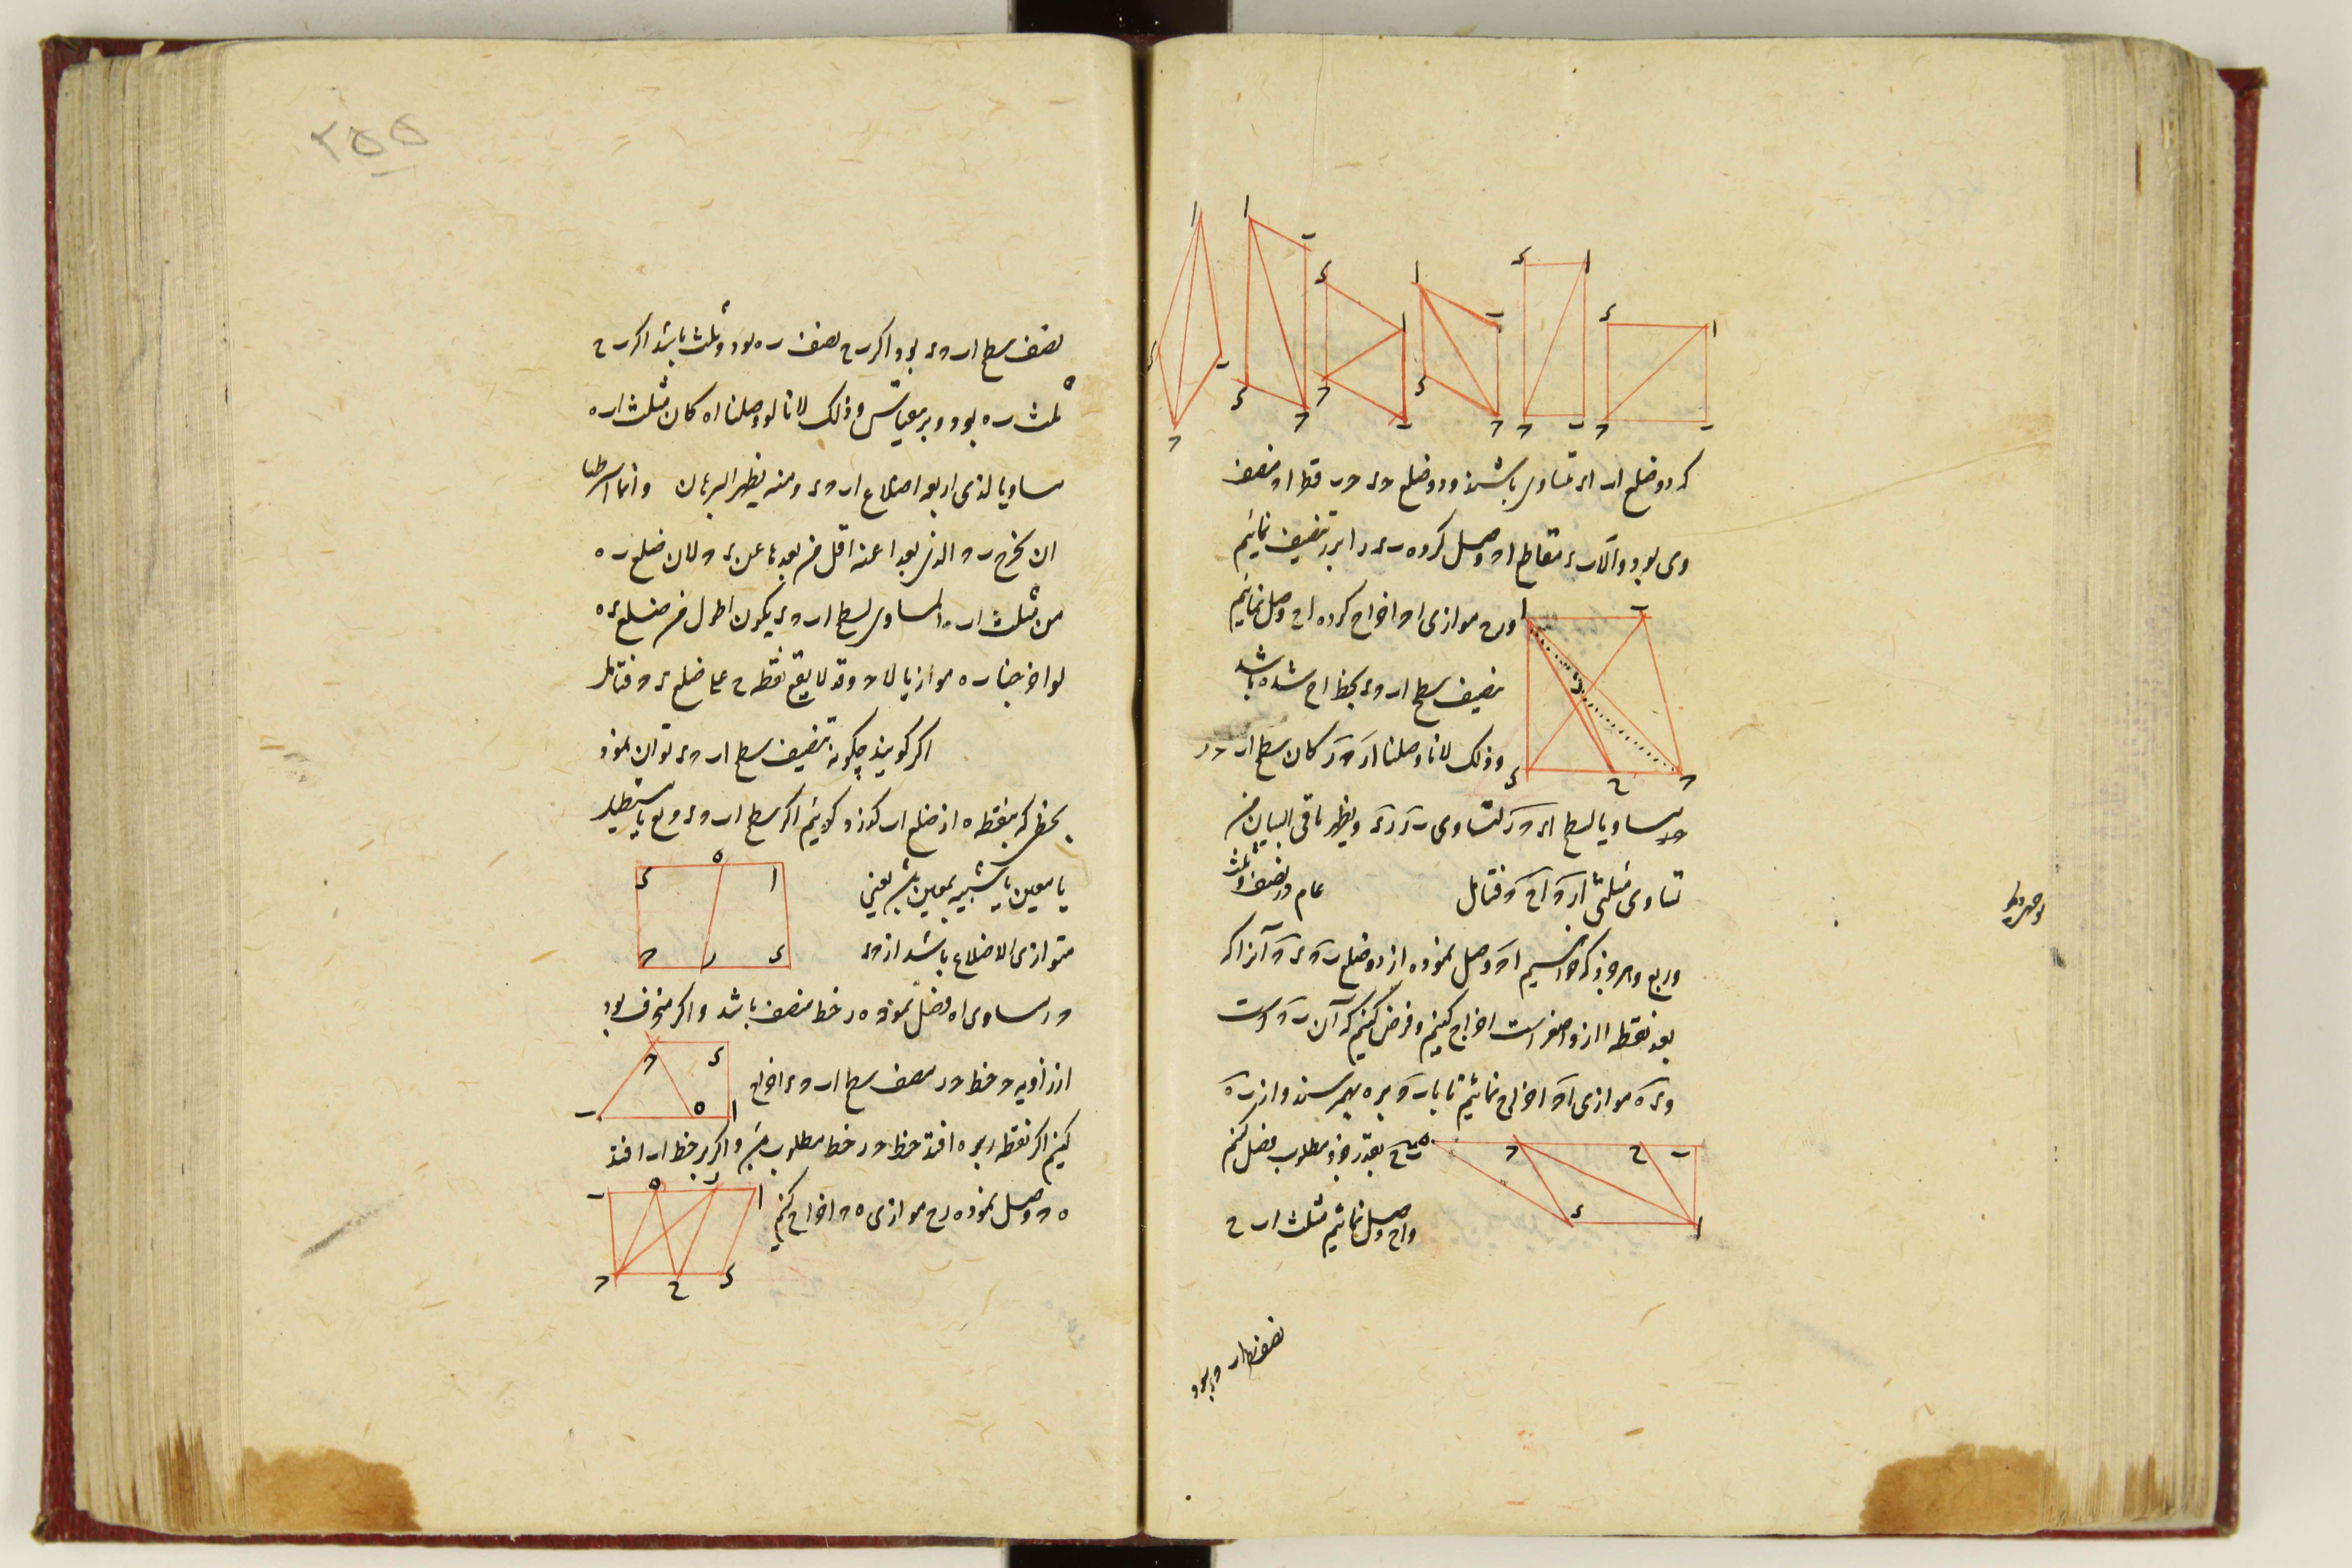 که دو ضلع ا ب ا د متساوی باشند و دو ضلع ح د ح ب قطر ا ح منصف
وی بود و الا ب د مقاطع ا ح وصل کرده ب د را بر ر تنصیف نمائیم
و ر ح موازی ا ح اخراج کرده ا ح وصل نمائیم
تنصیف سطح ا ب ح د بخط ا ح شده باشد
و ذلک لانا وصلنا ا ر ح ر کان سطح ا ب ح ر
مساویا لسطح ا د ح ر لتساوی ب ر ر د و یظهر باقی البیان من
تساوی مثلثی ا ر ح ا ح ح فتامل
عام در نصف و ثلث
و ربع و هر جزء که خواهیم ا ح وصل نموده از دو ضلع ب ح د ح آنرا که
بعد نقطه ا از و اصغر است اخراج کنیم و فرض کنیم که آن ب ح است
و د ه موازی ا ح اخراج نمائیم تا با ب ح بر ه بهم رسند و از ب ه
ب ح بقدر جزء مطلوب فصل کنیم
و ا ح وصل نمائیم مثلث ا ب ح
نصف سطح ا ب ح د بود
۲۵۵
نصف سطح ا ب ح د بود اگر ب ح نصف ب ه بود و ثلث باشد اگر ب ح
ثلث ب ه بود و برین قیاس و ذلک لانا لو وصلنا ا ه کان مثلث ا ب ه
مساویا لذی اربعة اضلاع ا ب ح د و منه یظهر البرهان و انما اشترطنا
ان نخرج ب ح الذی بعد ا عنه اقل من بعدها عن د ح لان ضلع ب ه
من مثلث ا ب ه المساوی لسطح ا ب ح د یکون اطول من ضلع د ه
لو اخرجنا ب ه موازیا لا ح و قد لا یقع نقطه ح علی ضلع د ح فتامل
اگر گویند چگونه تنصیف سطح ا ب ح د توان نمود
بخطی که بنقطه ه از ضلع ا ب گذرد گوئیم اگر سطح ا ب ح د مربع یا مستطیل
یا معین یا شبیه بمعین باشد یعنی
متوازی الاضلاع باشد از ح د
ح ر مساوی ا ه فصل نموده ه ر خط منصف باشد و اگر منحرف بود
از زاویه ح خط ح ر منصف سطح ا ب ح د اخراج
کنیم اگر نقطه ر بر ه افتد خط ح ر خط مطلوب است و اگر بر خط ا ه افتد
ه ح وصل نموده ر ح موازی ه ح اخراج کنیم